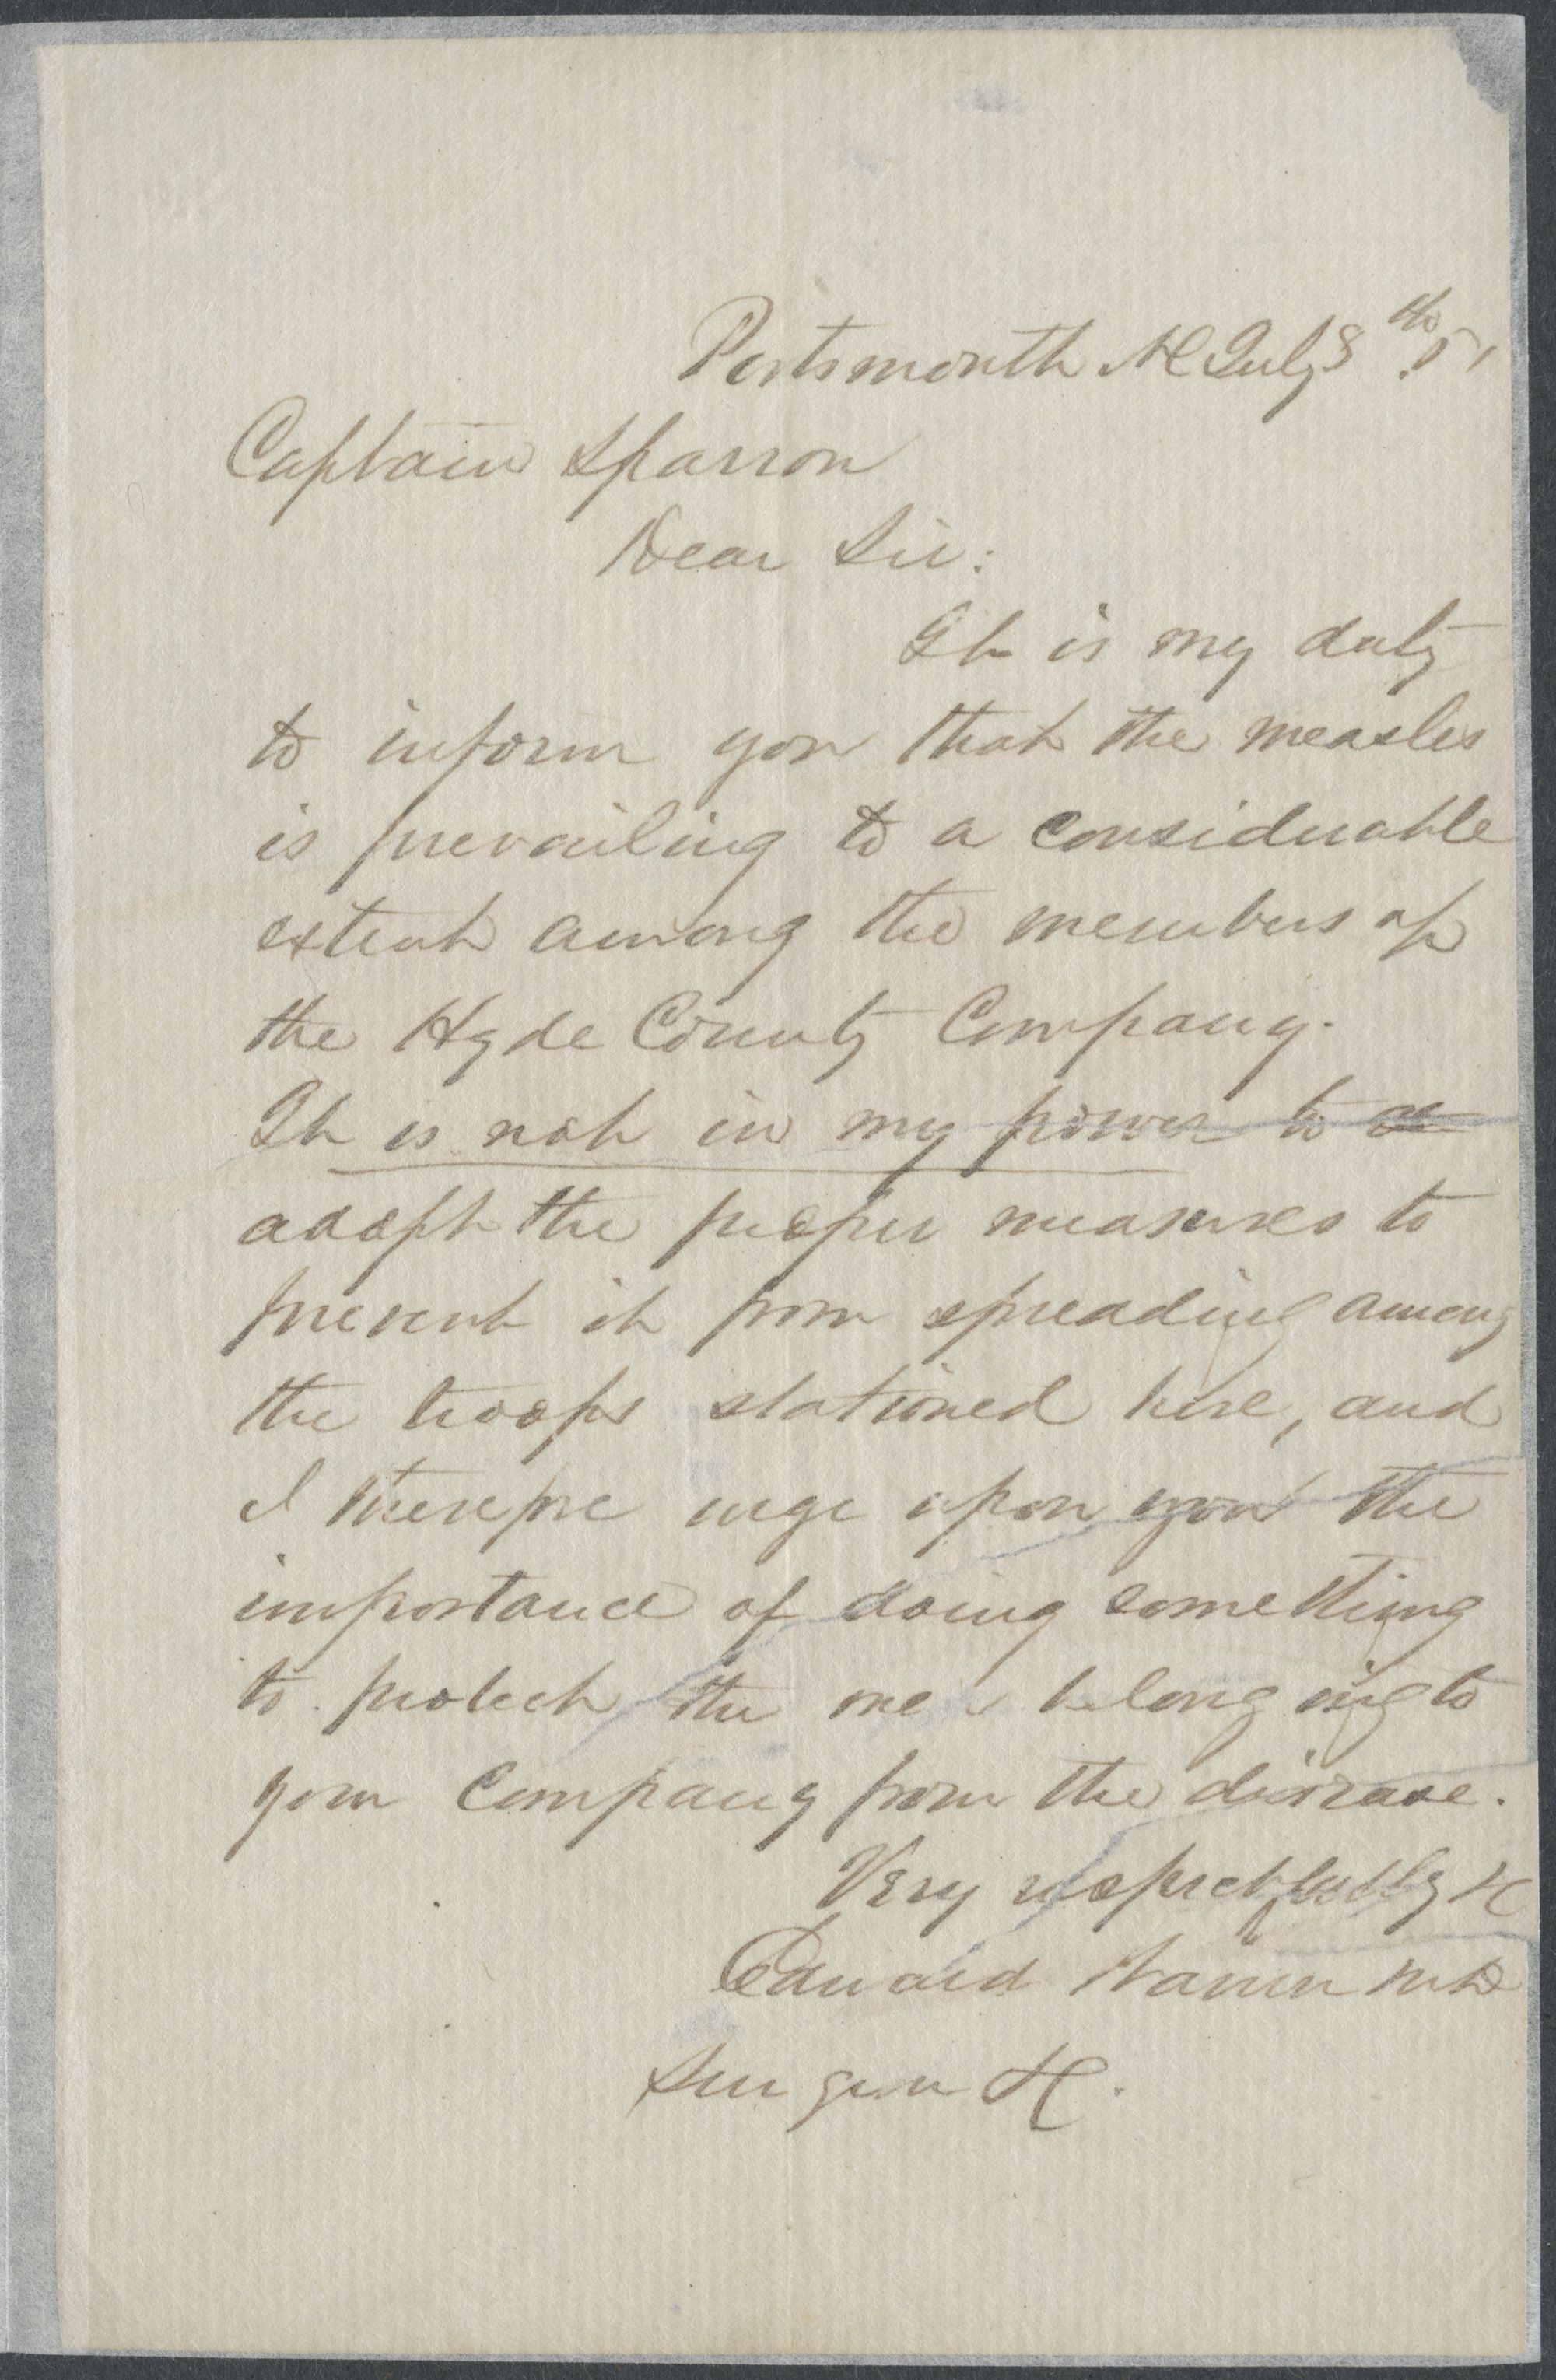 Portsmouth NC July 8th
Captain Sparrow
Dear Sir:
It is my duty
to inform you that the measles
is prevailing to a considerable
extent among the members of
the Hyde County Company.
It is not in my power to
adopt the proper measures to
prevent it from spreading among
the troops stationed here, and
I therefore urge upon you the
importance of doing something
to protect the men belonging to
your Company from the disease.
Very respectfully &c
Edward Warren MD
Surgeon &c.